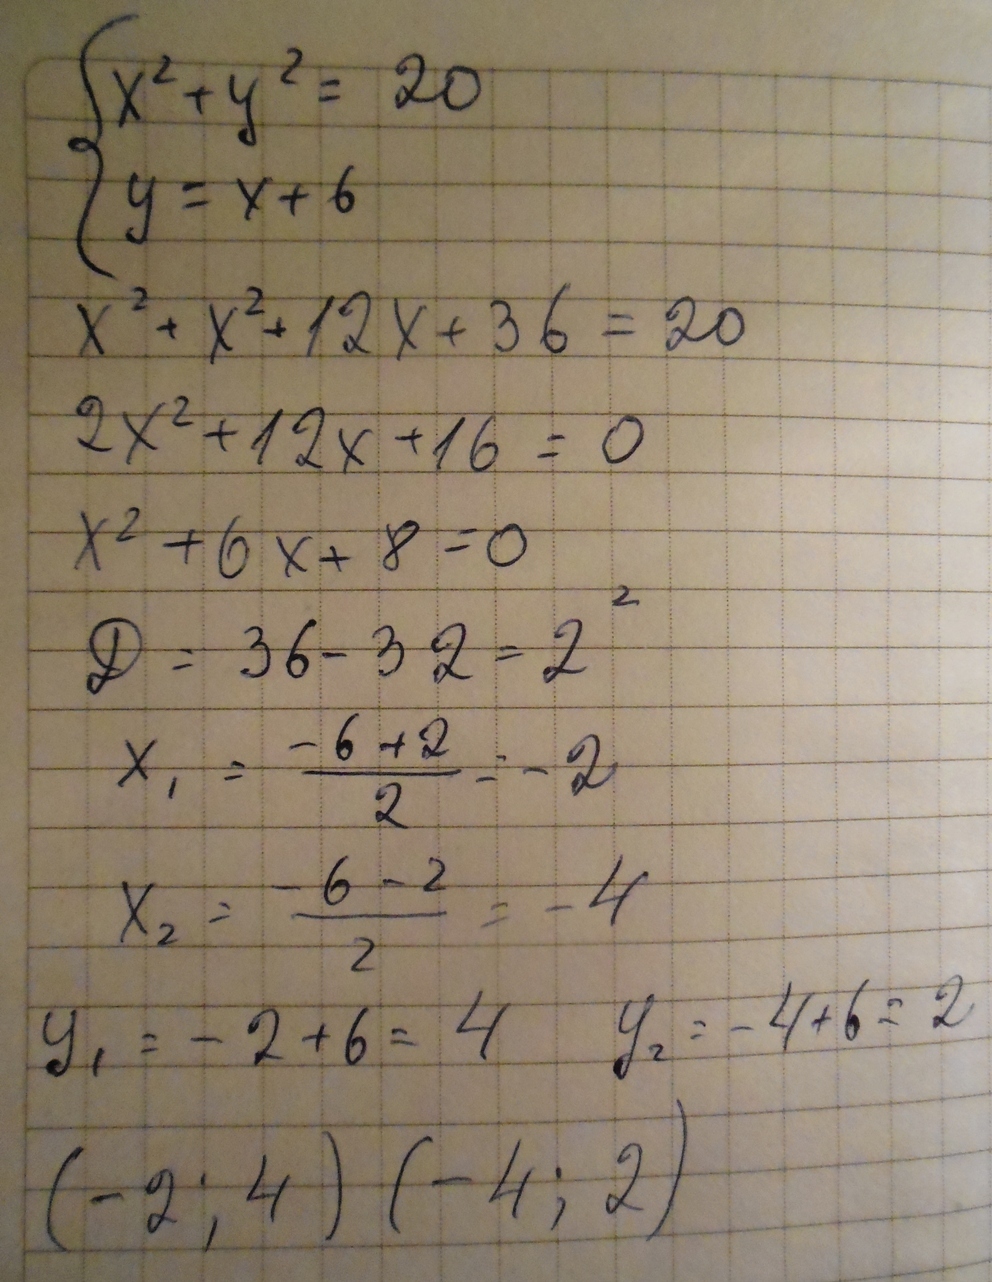 x² + y² = 20
y = x + 6
x² + x² + 12x + 36 = 20
2x² + 12x + 16 = 0
x² + 6x + 8 = 0
D = 36 - 32 = 2²
x₁ = (-6 + 2)/2 = -2
x₂ = (-6 - 2)/2 = -4
y₁ = -2 + 6 = 4 y₂ = -4 + 6 = 2
(-2; 4) (-4; 2)